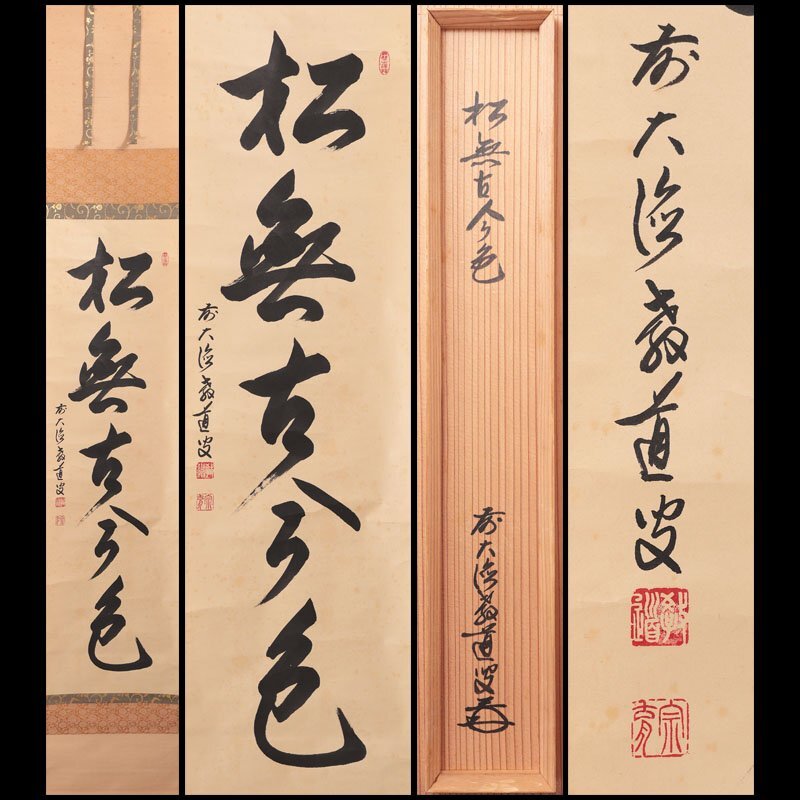 松無古今色
前大徳教道叟
松無古今色
前大徳教道叟
松無古今色
前大徳教道叟
前大徳教道叟
教道
宗